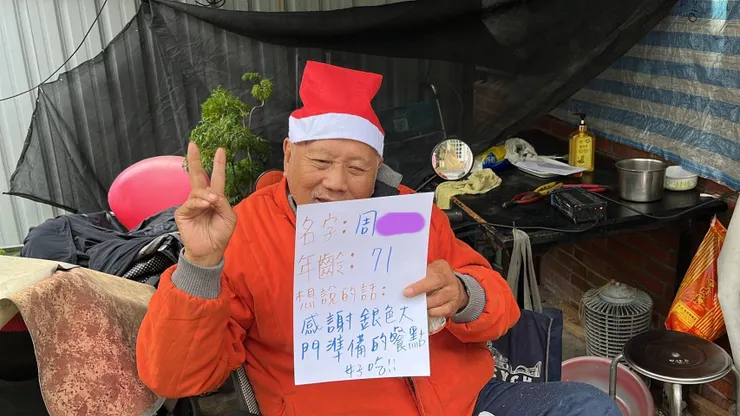 名字:周
年齡:71
想說的話:
感謝銀色大
門準備的餐點
好吃!!